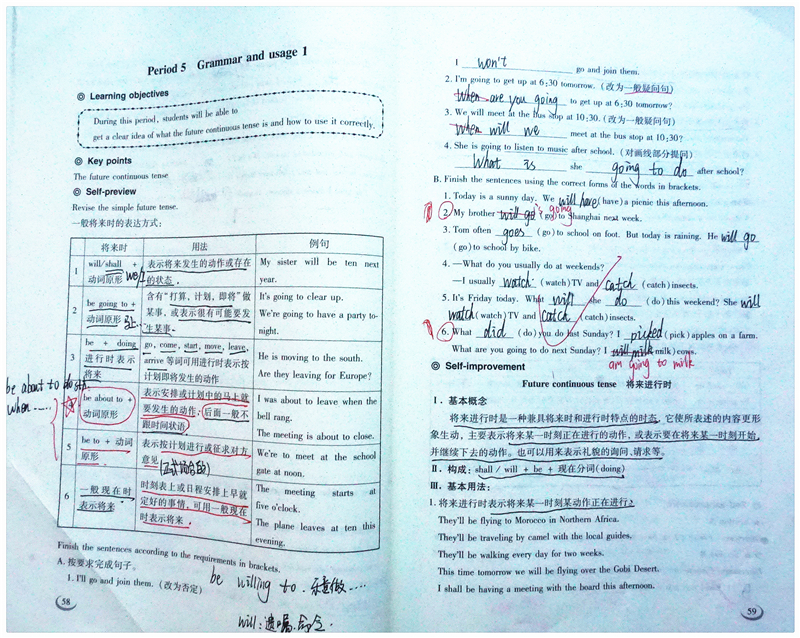 Period 5 Grammar and usage 1
◎ Learning objectives
During this period, students will be able to
get a clear idea of what the future continuous tense is and how to use it correctly.
◎ Key points
The future continuous tense
◎ Self-preview
Revise the simple future tense.
一般将来时的表达方式:
将来时 用法 例句
1 will/shall + 动词原形 we/I
表示将来发生的动作或存在的状态.
My sister will be ten next year.
2 be going to + 动词原形
含有“打算,计划,即将”做某事,或表示很有可能要发生某事.
It's going to clear up.
We're going to have a party to-
night.
3 be + doing 进行时表示将来
go, come, start, move, leave, arrive 等词可用进行时表示按计划即将发生的动作
He is moving to the south.
Are they leaving for Europe?
be about to do sth
when……
be about to + 动词原形
表示安排或计划中的马上就要发生的动作;后面一般不跟时间状语
I was about to leave when the
bell rang.
The meeting is about to close.
5 be to + 动词原形
表示按计划进行或征求对方意见
We're to meet at the school
gate at noon.
6 一般现在时表示将来
时刻表上或日程安排上早就定好的事情,可用一般现在时表示将来.
The meeting starts at
five o'clock.
The plane leaves at ten this
evening.
Finish the sentences according to the requirements in brackets.
A. 按要求完成句子。
1. I'll go and join them. (改为否定)
be willing to. 乐意做……
will: 遗嘱.命令.
58
I won't go and join them.
2. I'm going to get up at 6:30 tomorrow. (改为一般疑问句)
When are you going to get up at 6:30 tomorrow?
3. We will meet at the bus stop at 10:30. (改为一般疑问句)
When will we meet at the bus stop at 10:30?
4. She is going to listen to music after school. (对画线部分提问)
What is she going to do after school?
B. Finish the sentences using the correct forms of the words in brackets.
1. Today is a sunny day. We will have (have) a picnic this afternoon.
2. My brother will go is going (go) to Shanghai next week.
3. Tom often goes (go) to school on foot. But today is raining. He will go
(go) to school by bike.
4. —What do you usually do at weekends?
—I usually watch (watch) TV and catch (catch) insects.
5. It's Friday today. What will she do (do) this weekend? She will
watch (watch) TV and catch (catch) insects.
6. What did (do) you do last Sunday? I picked (pick) apples on a farm.
What are you going to do next Sunday? I will milk (milk) cows.
am going to milk
◎ Self-improvement
Future continuous tense 将来进行时
Ⅰ. 基本概念
将来进行时是一种兼具将来时和进行时特点的时态,它使所表述的内容更形
象生动,主要表示将来某一时刻正在进行的动作,或表示要在将来某一时刻开始,
并继续下去的动作。也可以用来表示礼貌的询问、请求等。
Ⅱ. 构成: shall / will + be + 现在分词(doing)
Ⅲ. 基本用法:
1. 将来进行时表示将来某一时刻某动作正在进行:
They'll be flying to Morocco in Northern Africa.
They'll be traveling by camel with the local guides.
They'll be walking every day for two weeks.
This time tomorrow we will be flying over the Gobi Desert.
I shall be having a meeting with the board this afternoon.
59